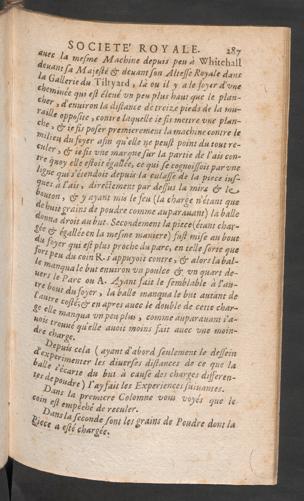 SOCIETE' ROYALE. 287
avec la mesme Machine depuis peu à Whitehall
devant sa Majesté & devant son Altesse Royale dans
la Gallerie du Tiltyard, là où il y a le foyer d'une
cheminée qui est élevé un peu plus haut que le plan-
cher, d'environ la distance de treize pieds de la mu-
raille opposite, contre laquelle ie fis mettre une plan-
che, & ie fis poser premierement la machine contre le
milieu du foyer afin qu'elle ne peust point du tout re-
culer, & ie fis une marque sur la partie de l'ais con-
tre quoy elle estoit égallée, ce qui se cognoissoit par une
ligne qui s'étendoit depuis la culasse de la piece jus-
ques à l'ais, directement par dessus la mire & le
bouton, & y ayant mis le feu (la charge n'étant que
de huit grains de poudre comme auparavant) la balle
donna droit au but. Secondement la piece (étant char-
gée & égallée en la mesme maniere) fust mise au bout
du foyer qui est plus proche du parc, en telle sorte que
fort peu du coin R. s'appuyoit contre, & alors la bal-
le manqua le but environ un poulce & un quart de-
vers le Parc ou A. Ayant fait le semblable à l'au-
tre bout du foyer, la balle manqua le but autant de
l'autre costé; & en apres avec le double de cette char-
ge elle manqua un peu plus, comme auparavant i'a-
vois trouvé qu'elle avoit moins fait avec une moin-
dre charge.
Depuis cela (ayant d'abord seulement le dessein
d'experimenter les diverses distances de ce que la
balle s'écarte du but à cause des charges differen-
tes de poudre) i'ay fait les Experiences suivantes.
Dans la premiere Colomne vous voyés que le
coin est empéché de reculer.
Dans la seconde sont les grains de Poudre dont la
Piece a esté chargée.